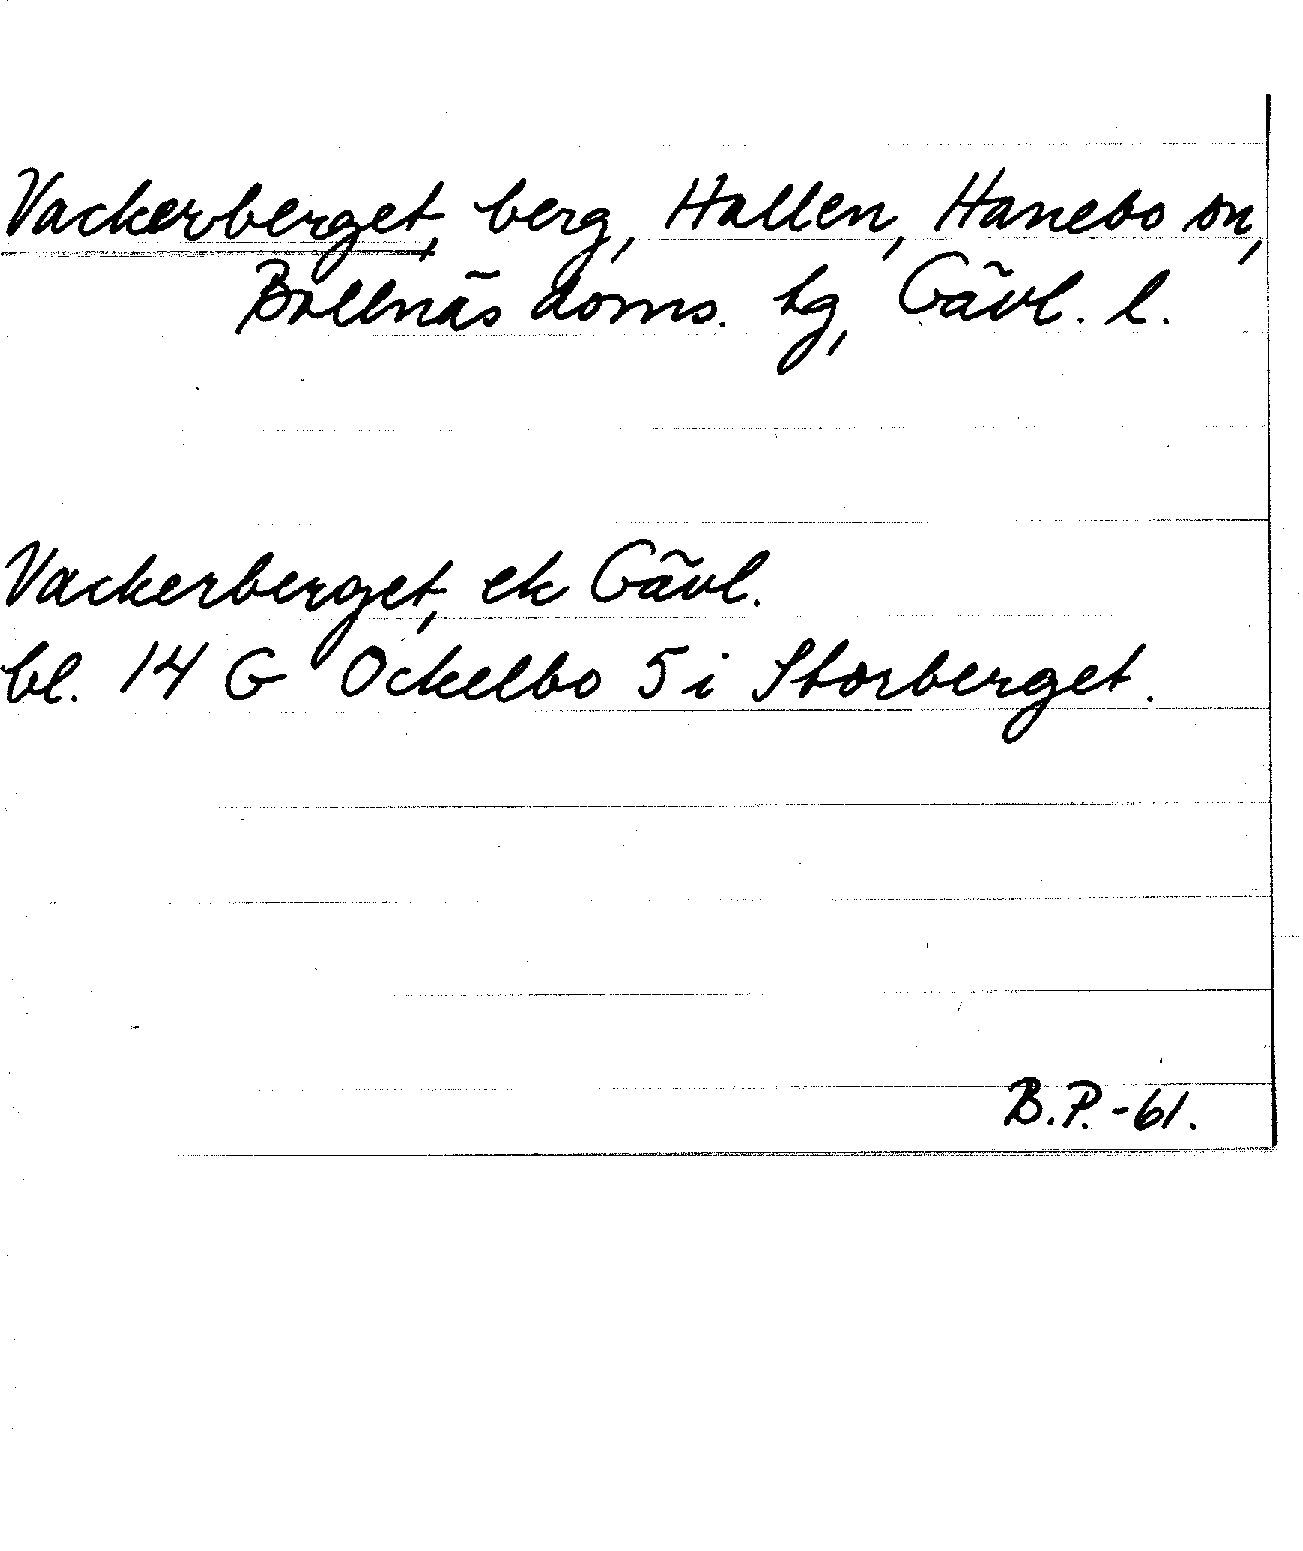 Vackerberget, berg, Hallen, Hanebo sn,
Bollnäs doms. hg, Gävl. l.
Vackerberget, ek Gävl.
bl. 14 G Ockelbo 5 i Storberget.
B.P.-61.